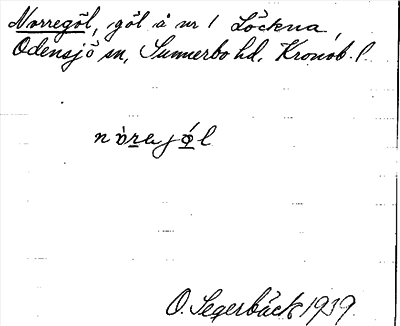 Norregöl, göl å nr 1 Löckna,
Odensjö sn, Sunnerbo hd, Kronob. l.
nòrejǿl
O. Segerbäck 1939.